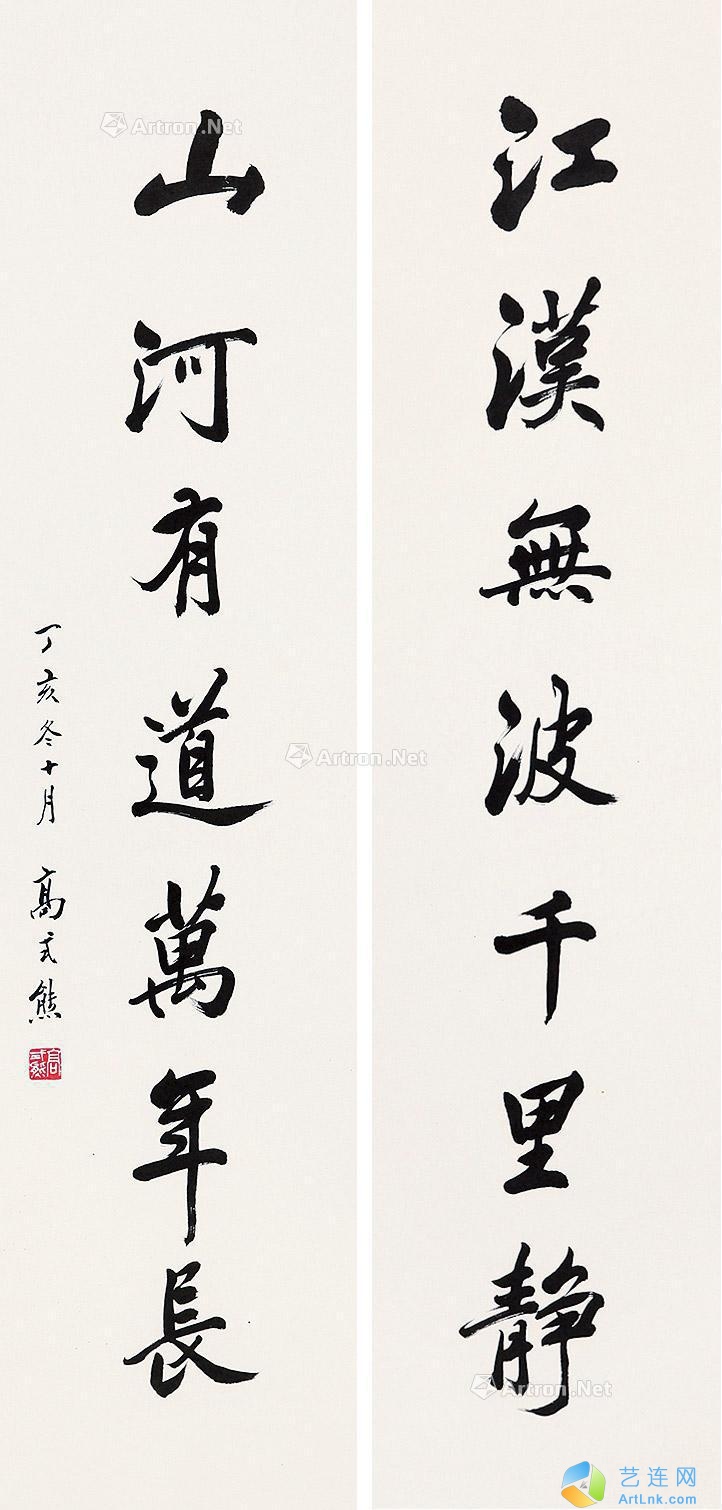 江漢無波千里静
山河有道萬年長
丁亥冬十月 高式熊
高式熊
Artron.Net
Artron.Net
Artron.Net
艺连网
ArtLnk.com